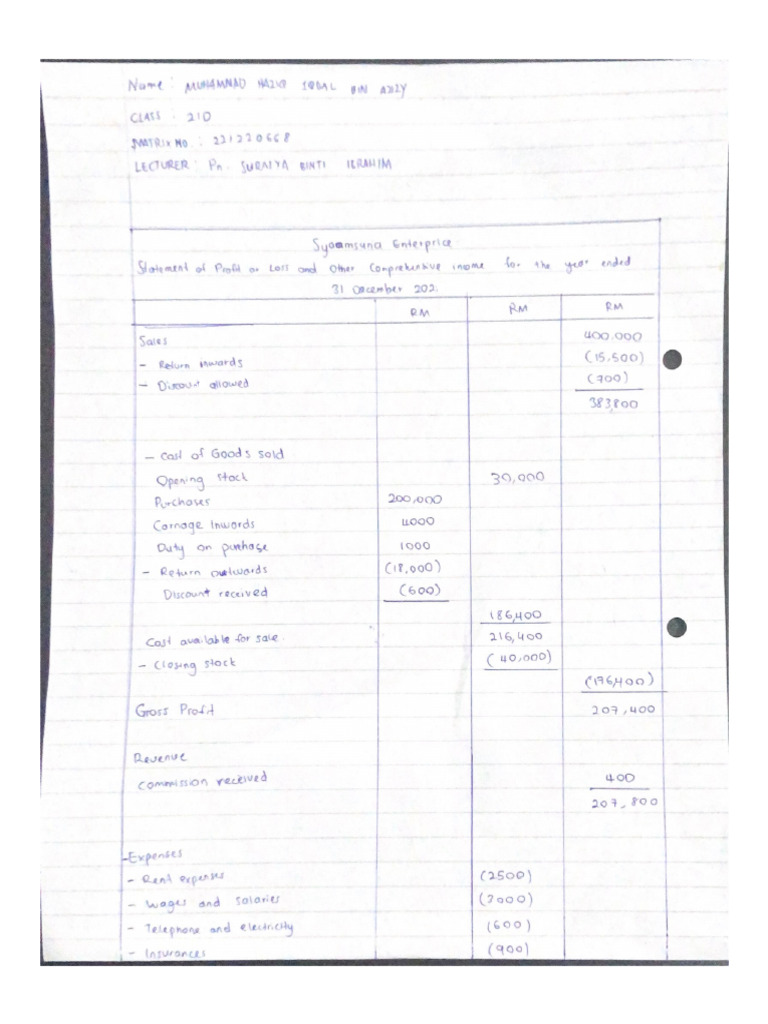 Name : MUHAMMAD HAZIQ IQBAL BIN AZIZY
CLASS : 21D
MATRIX NO : 221220668
LECTURER : Pn. SURAIYA BINTI IBRAHIM
Enterprice
Statement of Profit or Loss and Other Comprehentive income for the year ended
31 December 202
RM RM RM
Sales 400.000
- Return inwards (15.500)
- Discount allowed (700)
383,800
- Cost of Goods sold
Opening stock 30,000
Purchases 200,000
Carriage Inwards 4000
Duty on purchase 1000
- Return outwards (18,000)
Discount received (600)
186,400
Cost available for sale. 216,400
- Closing stock (40,000)
(176,400)
Gross Profit 207,400
Revenue
Commission received 400
207,800
-Expenses
- Rent expenses (2500)
- Wages and salaries (7000)
- Telephone and electricity (600)
- Insurances (900)